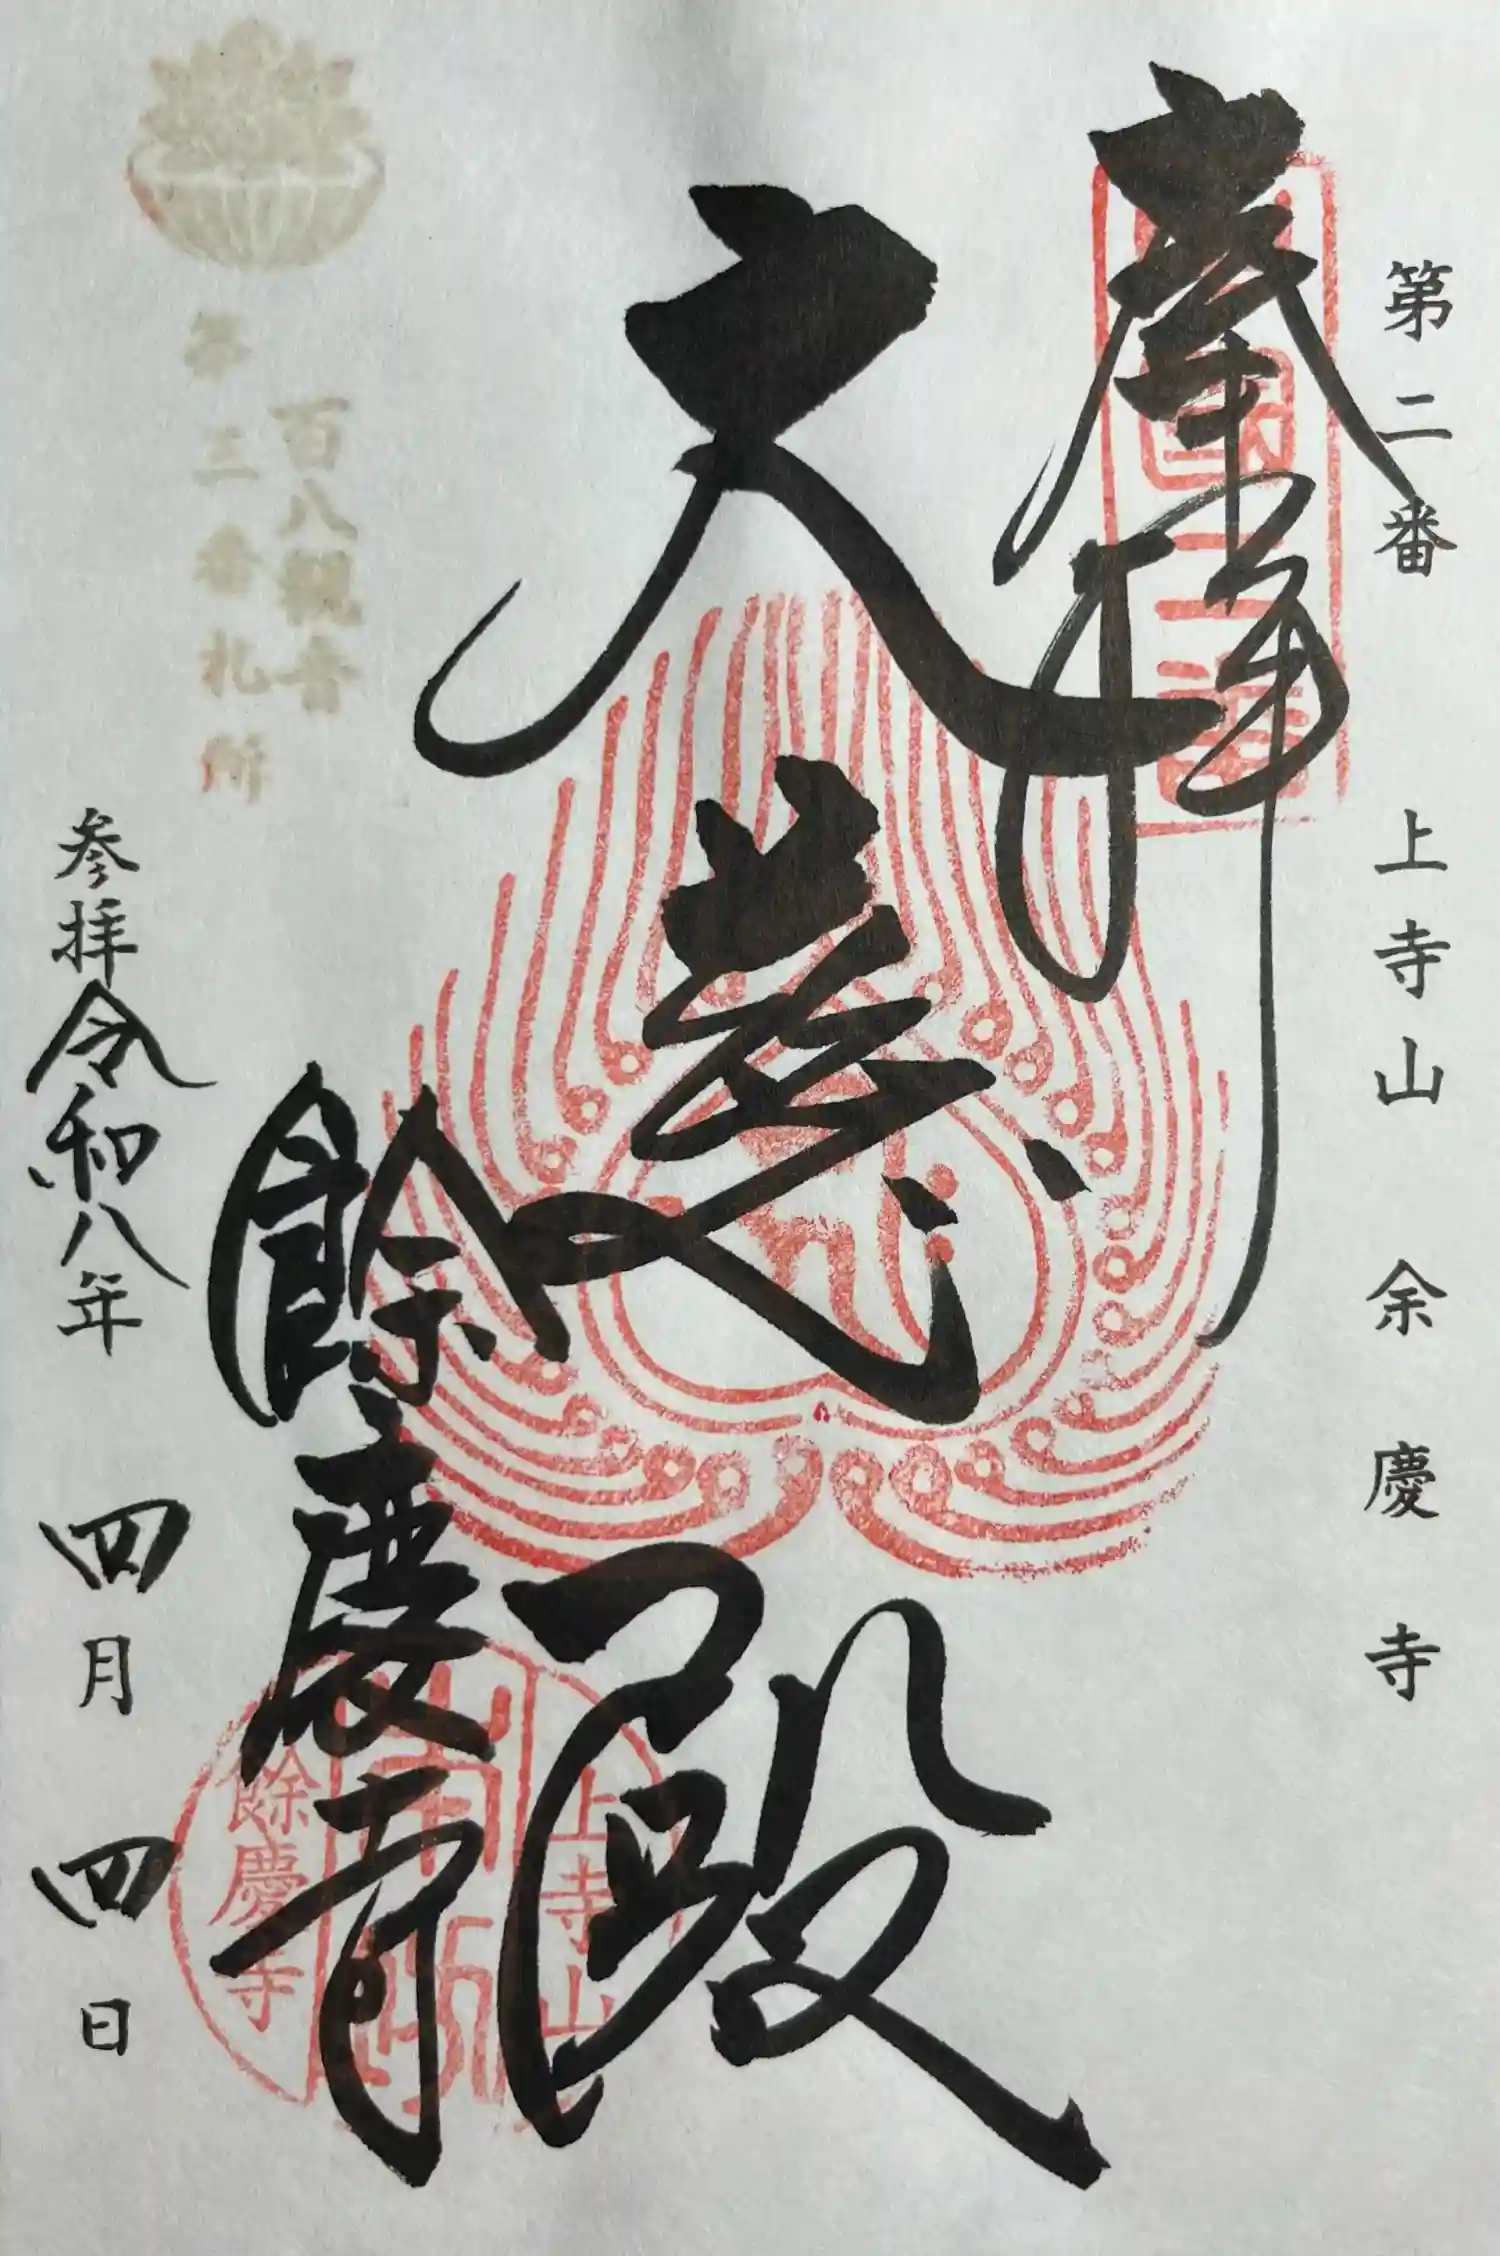 第二番 上寺山 余慶寺
奉拝
大慈殿
餘慶寺
上寺山
餘慶寺
百八観音
第三番札所
参拝令和八年 四月 四日